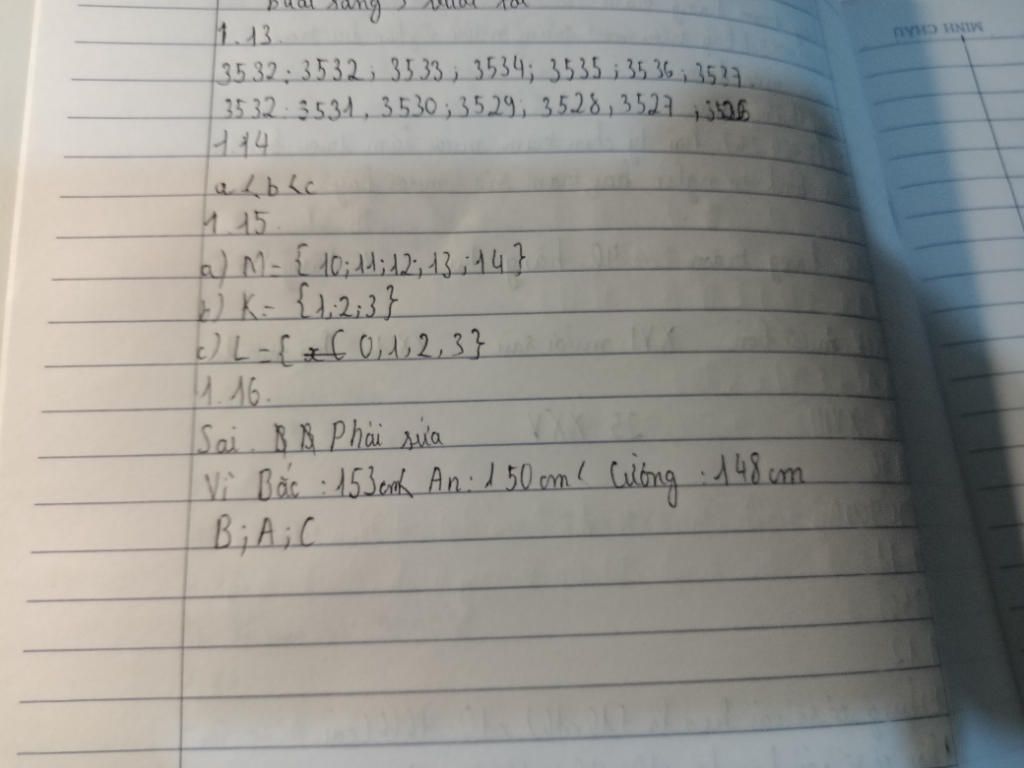 Buổi sáng,
1.13.
3532: 3532; 3533; 3534; 3535; 3536; 3537
3532: 3531, 3530; 3529; 3528, 3527, 3526
1.14
a < b < c
1.15.
a) M = { 10; 11; 12; 13; 14 }
b) K = {1; 2; 3}
c) L = { 0; 1; 2, 3}
1.16.
Sai. Phải sửa
Vì Bắc : 153cm < An : 150cm < Cường : 148cm
B; A; C
MINH CHÂU